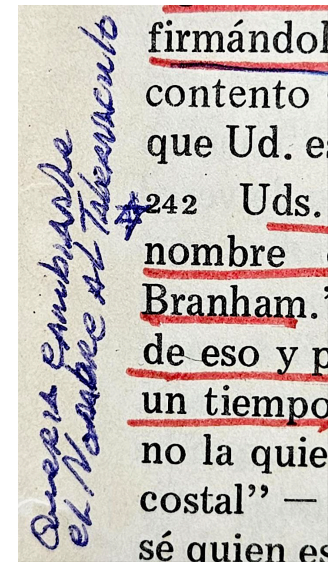 Quería cambiarle
el Nombre al Tabernaculo
firmándol
contento
que Ud. es
242 Uds.
nombre
Branham.”
de eso y p
un tiempo
no la quie
costal” —
sé quien es